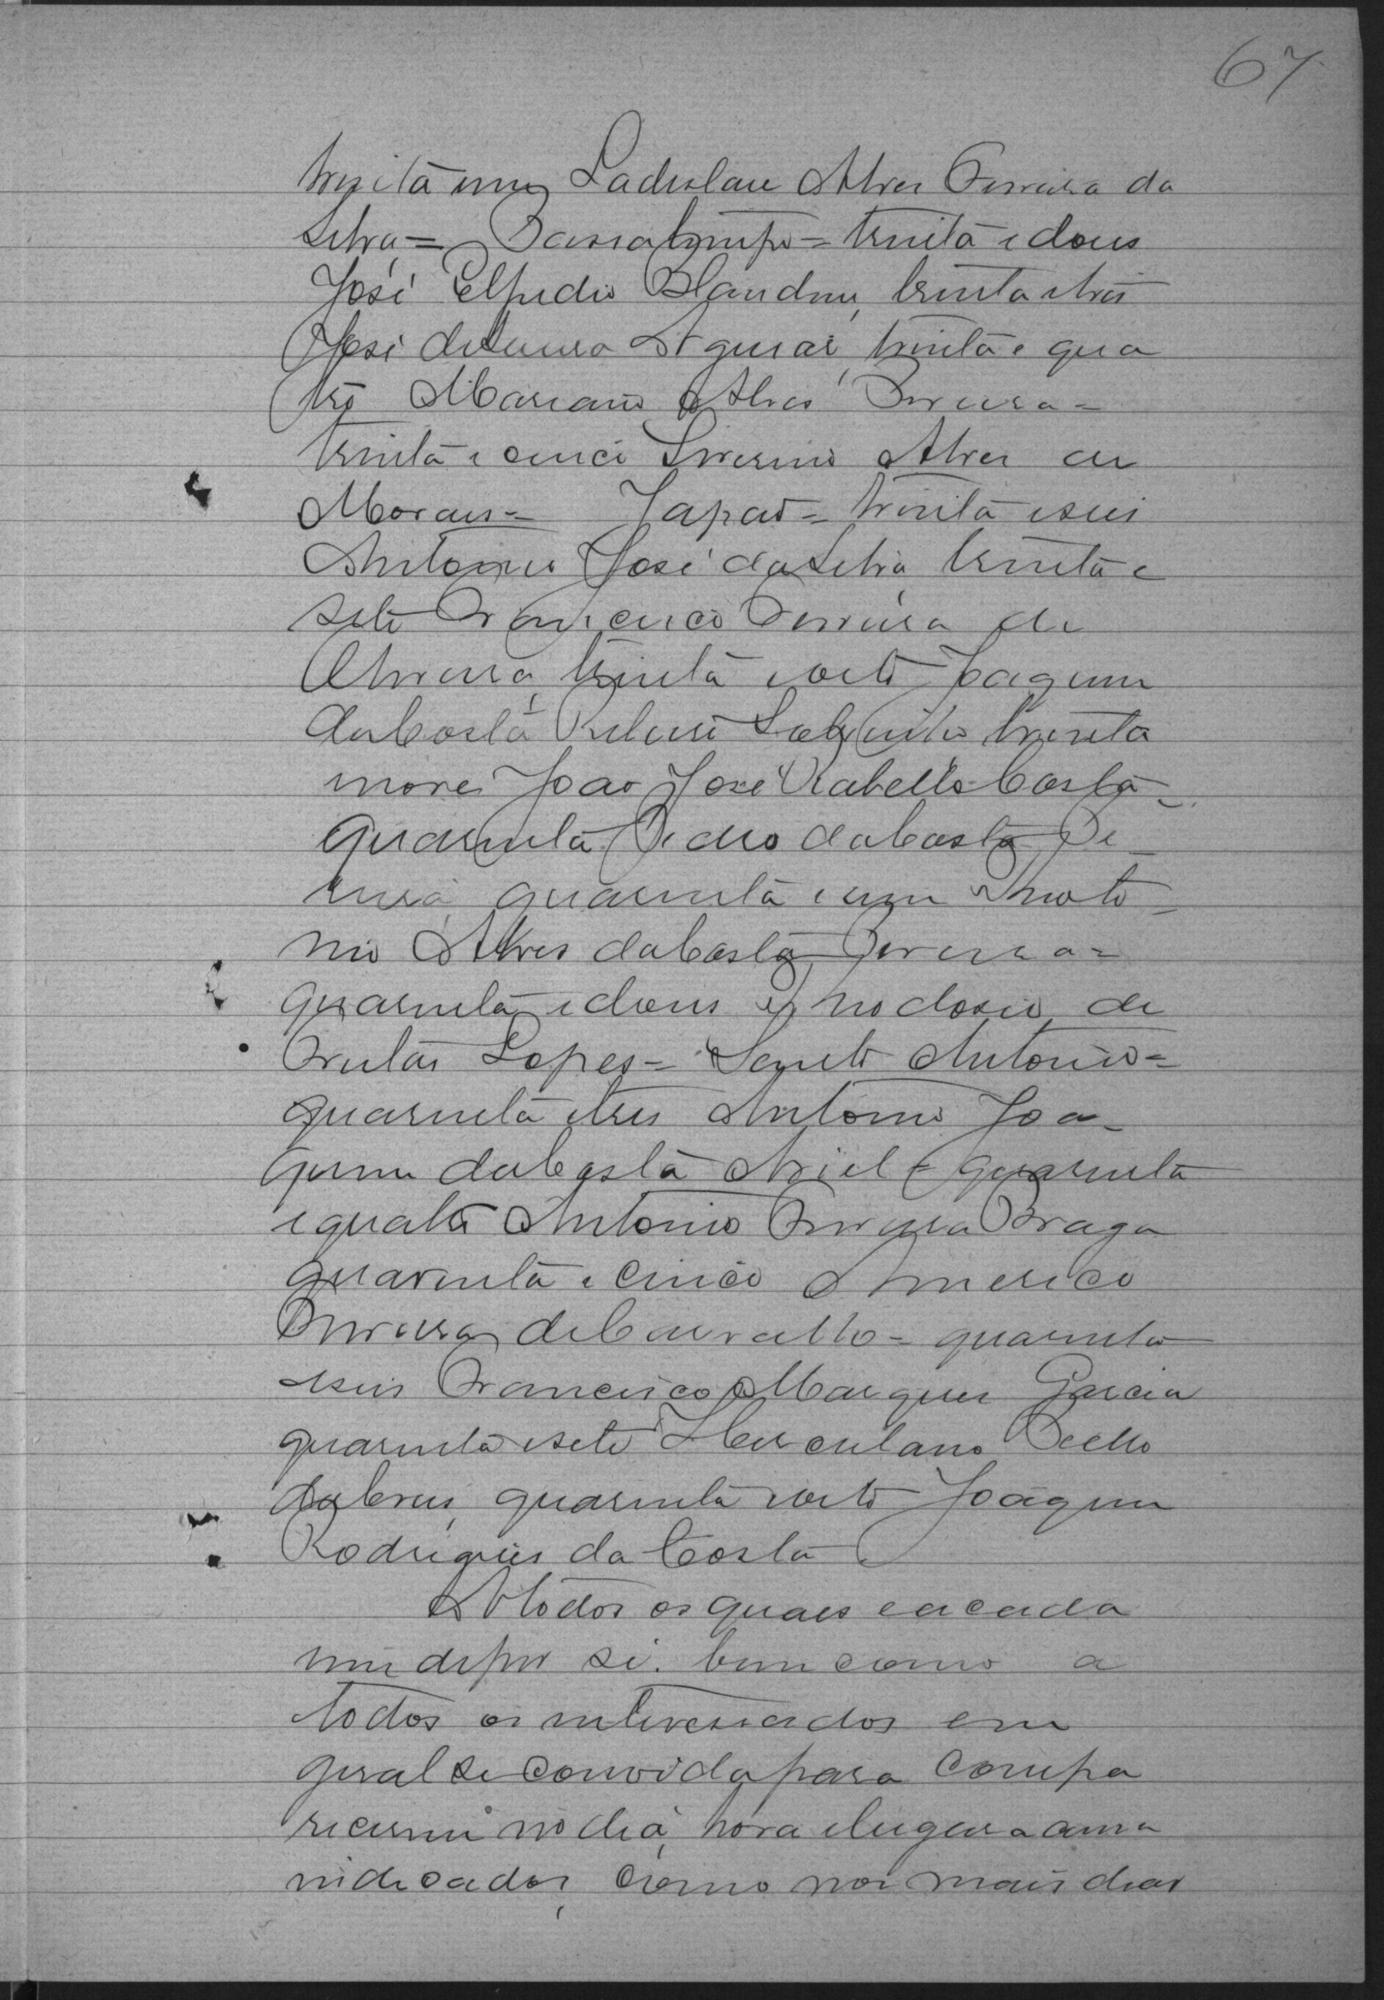 67
trinta um Ladislau Alves Ferreira da
Silva = Passatempo = trinta e dous
José Elpidio Flandim, trinta e tres
José de Aguiar, trinta e qua
tro Mariano Alves Ferreira =
trinta e cinco Severino Alves de
Moraes = Japão = trinta e seis
Antonio José da Silva, trinta e
sete Francisco Ferreira de
Oliveira, trinta e oito Joaquim
da Costa Pereira trinta
nove João José Rabello Costa =
quarenta Pedro da Costa Pe =
reira, quarenta e um Anto =
nio Alves da Costa Pereira =
quarenta e dous de
Freitas Lopes = Santo Antonio =
quarenta e tres Antonio Joa =
quim da Costa Maciel = quarenta
e quatro Antonio Ferreira Braga
quarenta e cinco Americo
Ferreira de Carvalho = quarenta
e seis Francisco Marques Garcia
quarenta e sete Herculano Pedro
da Cruz, quarenta e oito Joaquim
Rodrigues da Costa
A todos os quaes e a cada
um de per si. bem como a
todos os interessados em
geral se convida para compa
recerem no dia, hora e lugar acima
indicados, como nos mais dias